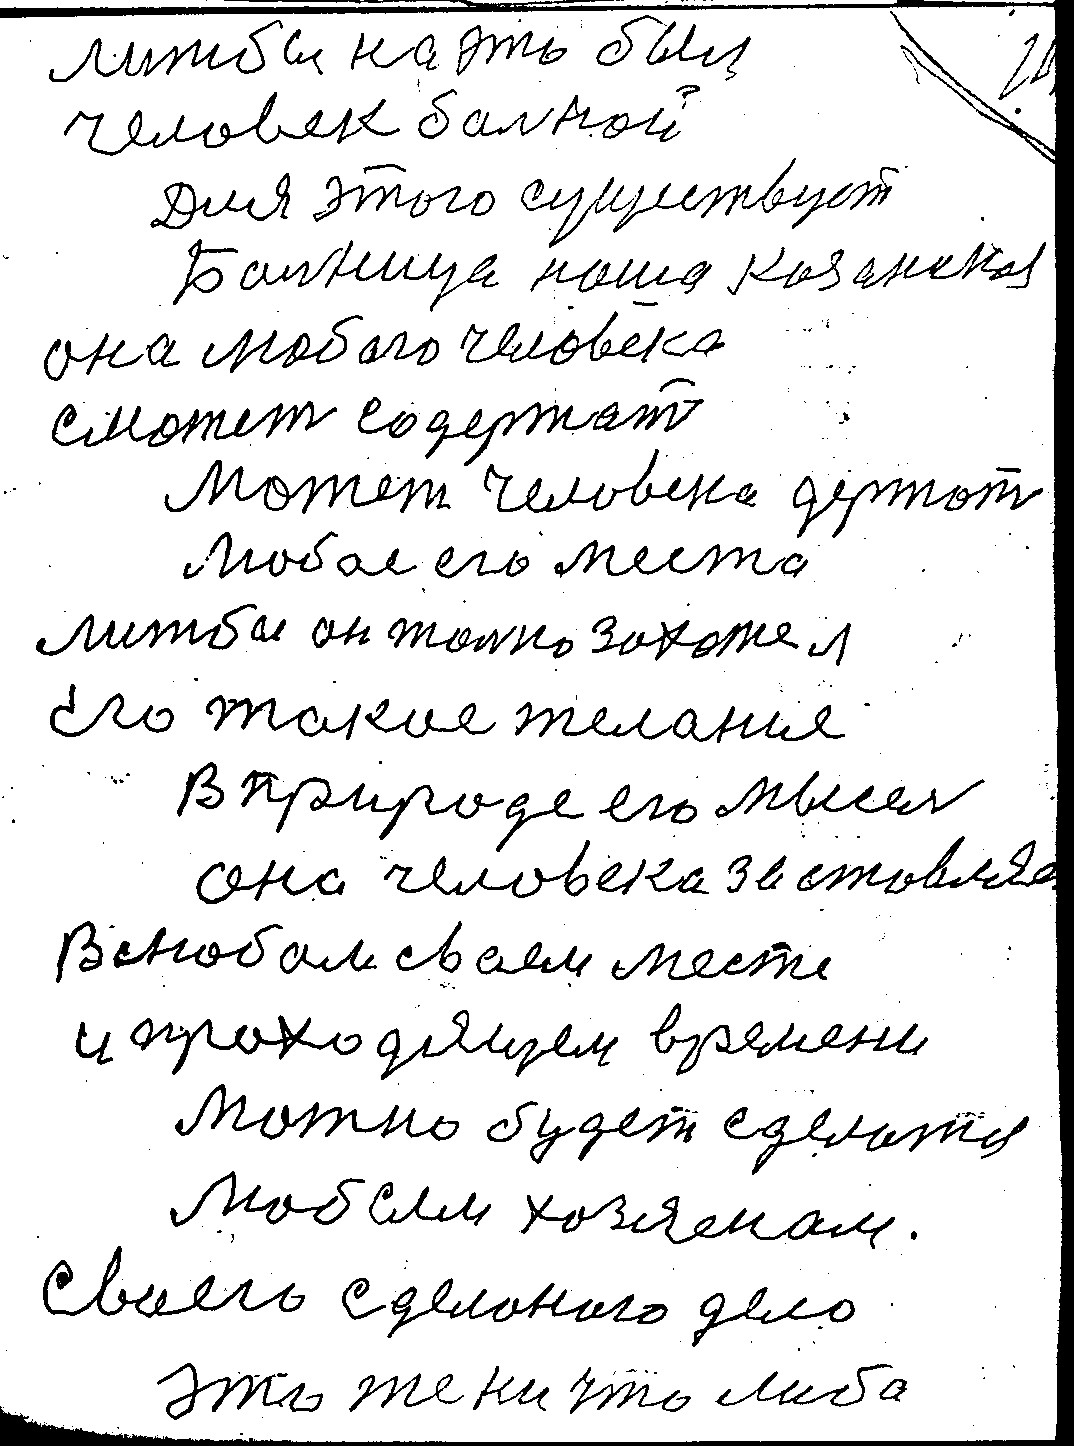 лижбы на это был
человек балной?
Для этого существует
Балница наша казанская
она любого человека
сможет содержат
Может человека держат
Любое его места
лижбы он толко захотел
Его такое желания
В природе его мысел
она человека заставляе
В любом сваем месте
и проходящем времени
Можно будет сделатся
Любыем хозяеном.
Сваего сделоного дело
Это же ни что либа